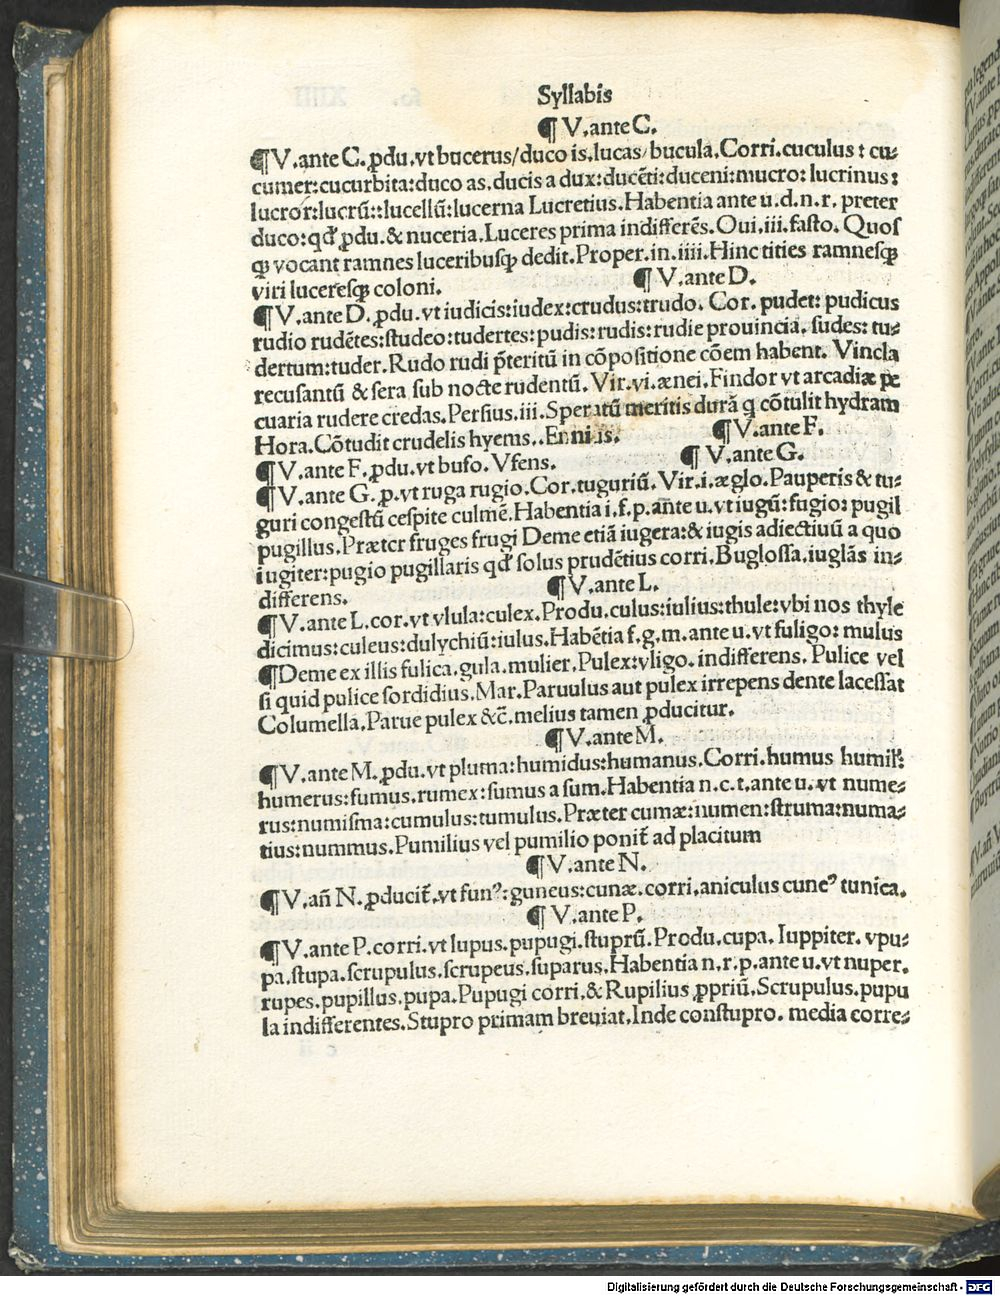 Syllabis
¶ V.ante C.
¶ V.ante C. ꝓdu. vt bucerus/duco is.lucas/bucula.Corri.cuculus: cu-
cumer:cucurbita:duco as.ducis a dux:ducēti:duceni:mucro: lucrinus:
lucror:lucrū::lucellū:lucerna Lucretius.Habentia ante u.d.n.r. preter
duco:qđ ꝓdu.& nuceria.Luceres prima indifferēs. Oui.iii.fasto. Quos
qꝫ vocant ramnes luceribusqꝫ dedit.Proper.in.iiii.Hinc tities ramnesqꝫ
viri luceresqꝫ coloni. ¶ V.ante D.
¶ V.ante D.ꝓdu.vt iudicis:iudex:crudus:trudo. Cor. pudet: pudicus
rudio rudētes:studeo:tudertes:pudis:rudis:rudie prouincia. sudes: tu-
dertum:tuder.Rudo rudi p̄teritū in cōpositione cōem habent. Vincla
recusantū & sera sub nocte rudentū.Vir.vi.ænei.Findor vt arcadiæ pe
cuaria rudere credas.Persius.iii.Speratū meritis durā q cōtulit hydram
Hora.Cōtudit crudelis hyems..Ennius. ¶ V.ante F.
¶ V.ante F.ꝓdu.vt bufo. Vfens. ¶ V.ante G.
¶ V.ante G.ꝓ.vt ruga rugio.Cor.tuguriū.Vir.i.æglo.Pauperis & tu-
guri congestū cespite culmē.Habentia i.f.p.an̄te u.vt iugū:fugio: pugil
pugillus.Præter fruges frugi Deme etiā iugera:& iugis adiectiuū a quo
iugiter:pugio pugillaris qđ solus prudētius corri.Buglossa.iuglās in-
differens. ¶ V.ante L.
¶ V.ante L.cor.vt vlula:culex.Produ.culus:iulius:thule:vbi nos thyle
dicimus:culeus:dulychiū:iulus.Habētia f.g.m.ante u.vt fuligo: mulus
¶ Deme ex illis fulica.gula.mulier.Pulex:vligo.indifferens. Pulice vel
si quid pulice sordidius.Mar.Paruulus aut pulex irrepens dente lacessat
Columella.Parue pulex &c̄.melius tamen ꝓducitur.
¶ V.ante M.
¶ V.ante M.ꝓdu.vt pluma:humidus:humanus.Corri.humus humil':
humerus:fumus.rumex:sumus a sum.Habentia n.c.t.ante u.vt nume-
rus:numisma:cumulus:tumulus.Præter cumæ:numen:struma:numa-
tius:nummus.Pumilius vel pumilio ponit̄ ad placitum
¶ V.ante N.
¶ V.añ N.ꝓducit̄.vt funꝰ:guneus:cunæ.corri.aniculus cuneꝰ tunica.
¶ V.ante P.
¶ V.ante P.corri.vt lupus.pupugi.stuprū.Produ.cupa. Iuppiter. vpu-
pa.stupa.scrupulus.scrupeus.suparus.Habentia n.r.p.ante u.vt nuper.
rupes.pupillus.pupa.Pupugi corri.& Rupilius ꝓpriū.Scrupulus.pupu
la indifferentes.Stupro primam breuiat.Inde constupro. media corre-
Digitalisierung gefördert durch die Deutsche Forschungsgemeinschaft - DFG